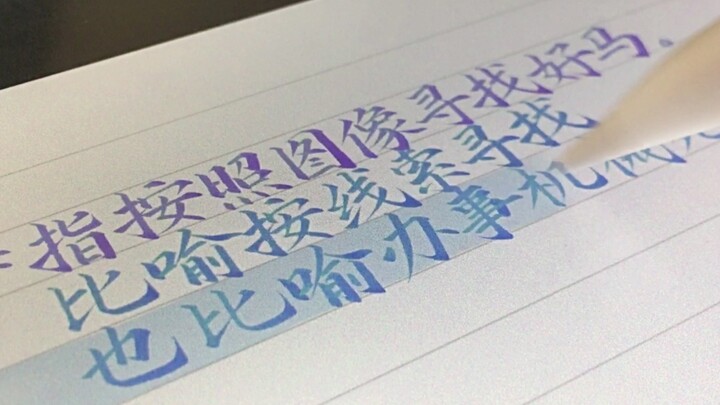 ：指按照图像寻找好马。
比喻按线索寻找
也比喻办事机械